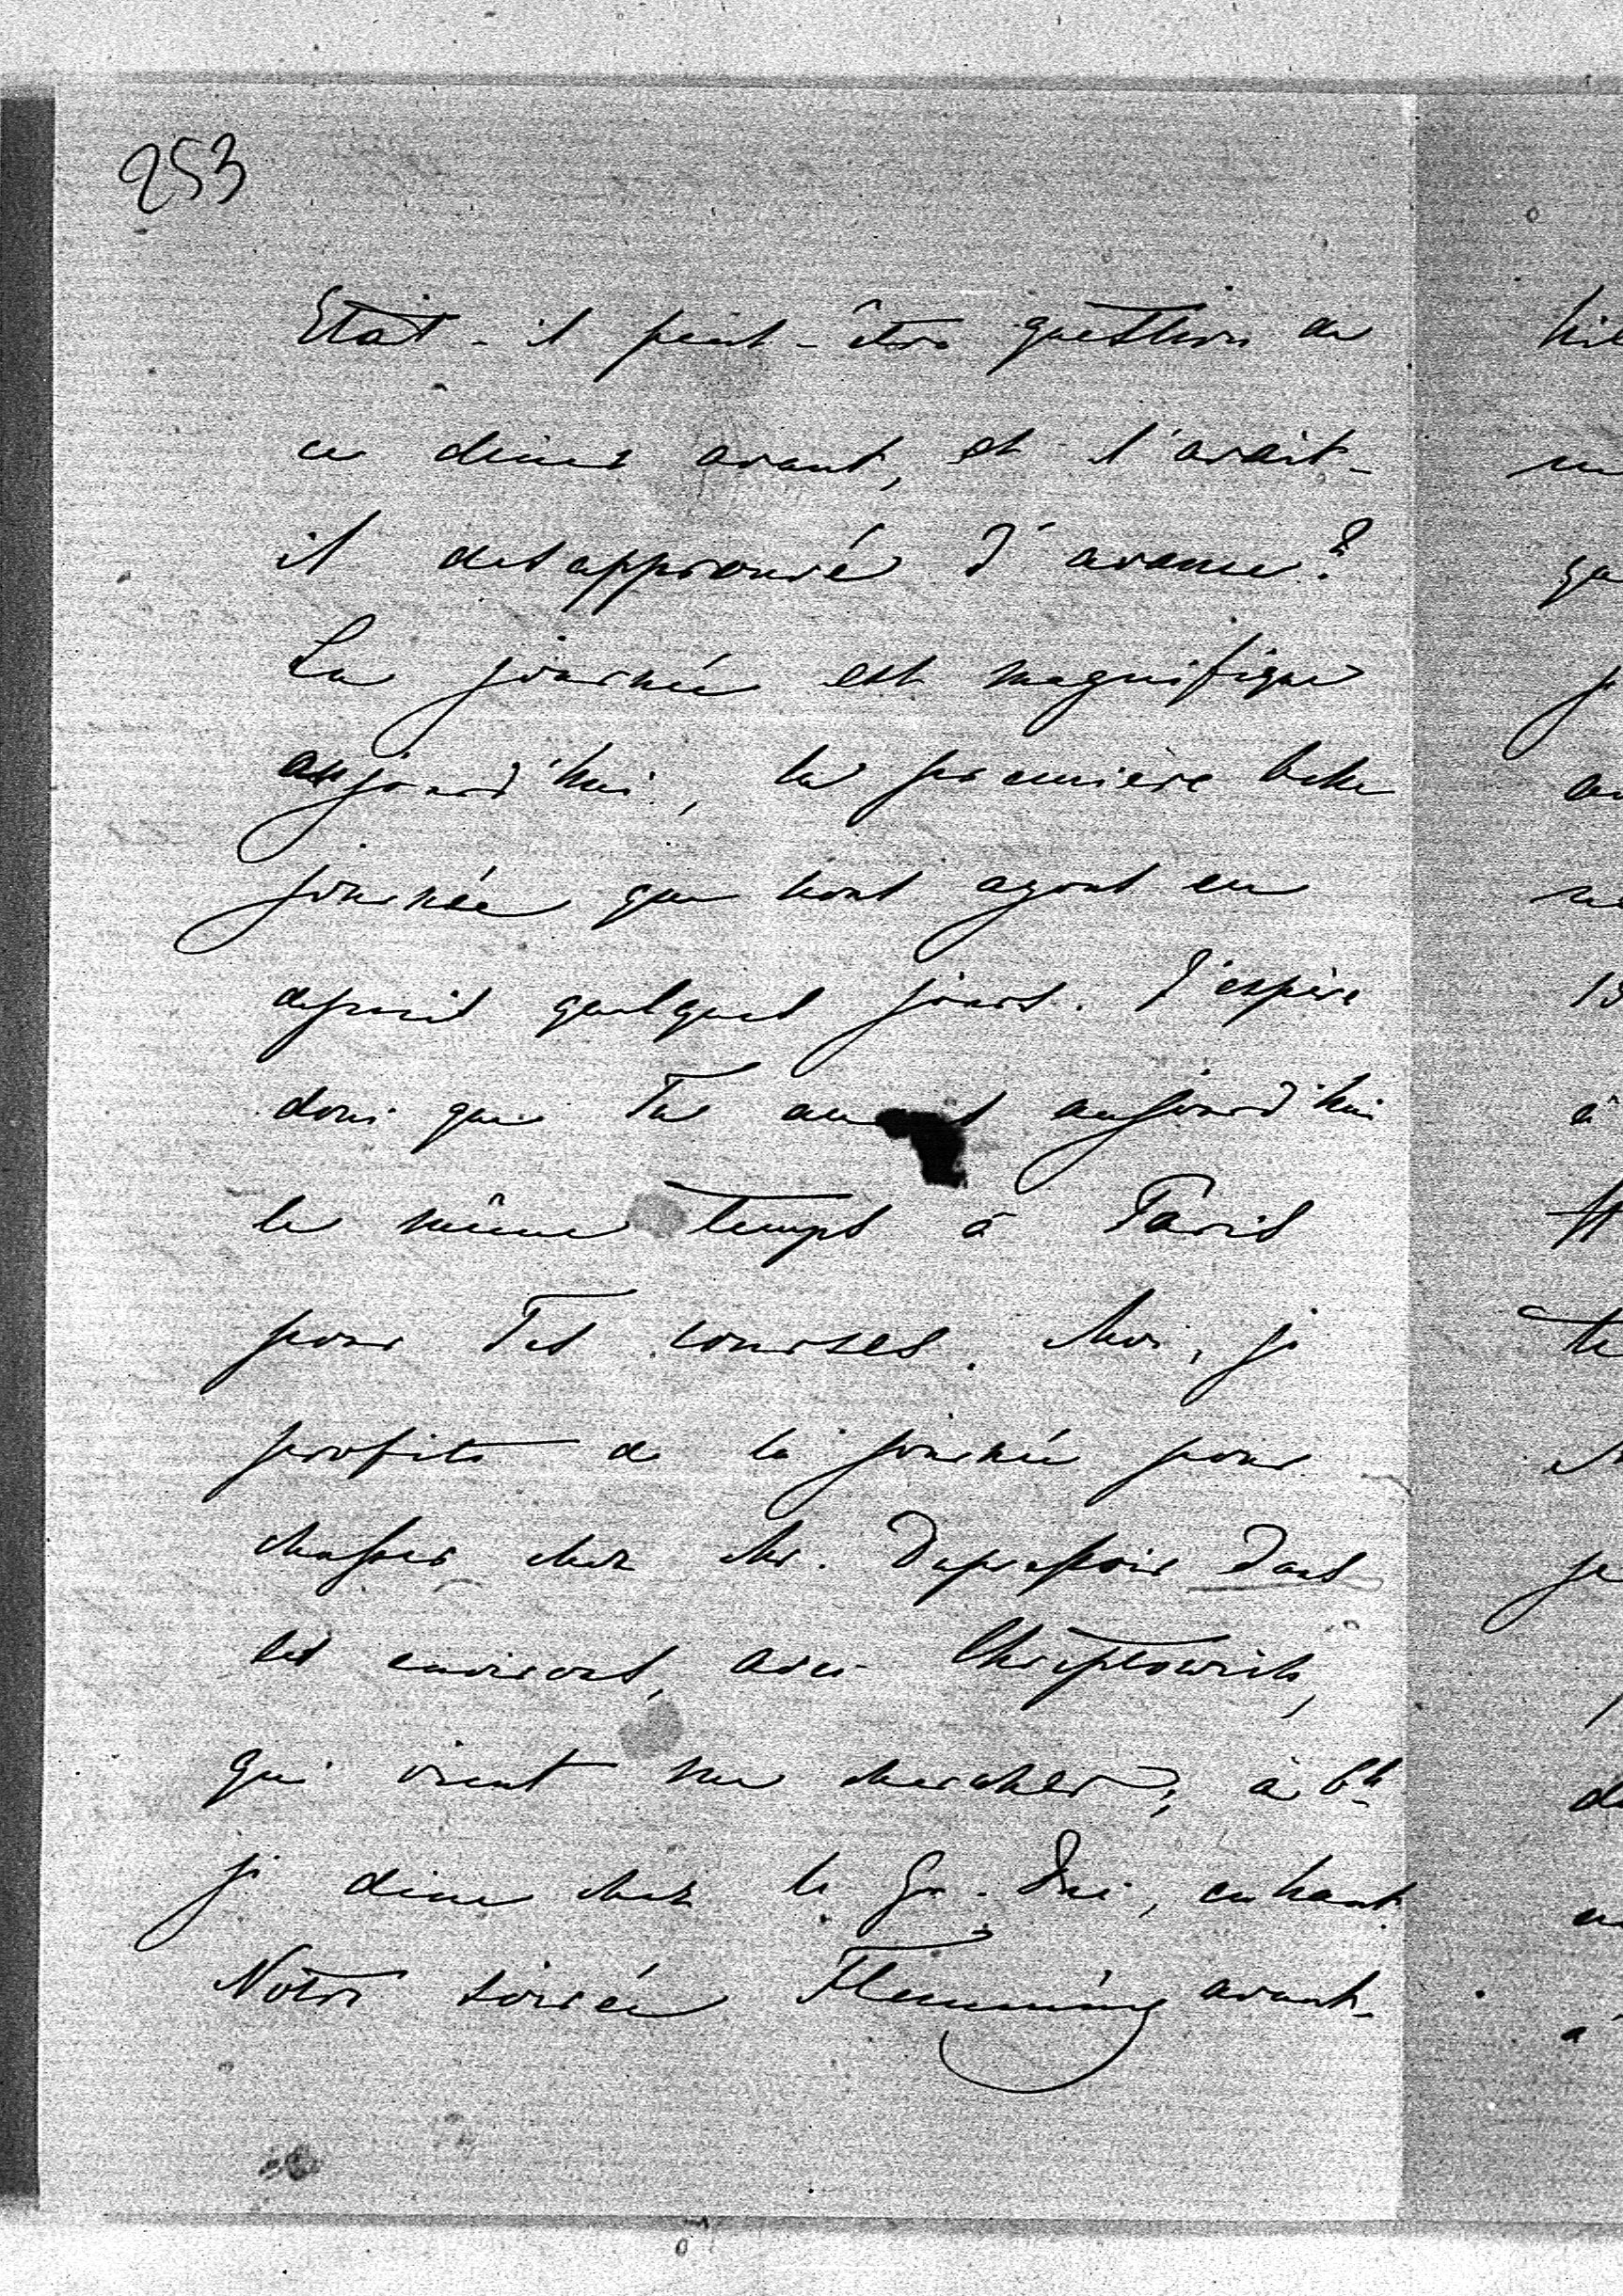 253
Etait-il peut-être question de
ce diner avant, et l'avait-
il desapprouvé d'avance?
La journée est magnifique
aujourd'hui, la première belle
journée que nous ayons eu
depuis quelques jours. J'espère
donc que Tu auras aujourd'hui
le même temps à Paris
pour Tes courses. Moi, je
profite de la journée pour
chasser chez Mr. dans
les environs, avec Chreptowich,
qui vient me chercher; à 6h
je dine chez le Gr. Duc, en haut
Notre soirée Flemming avant-